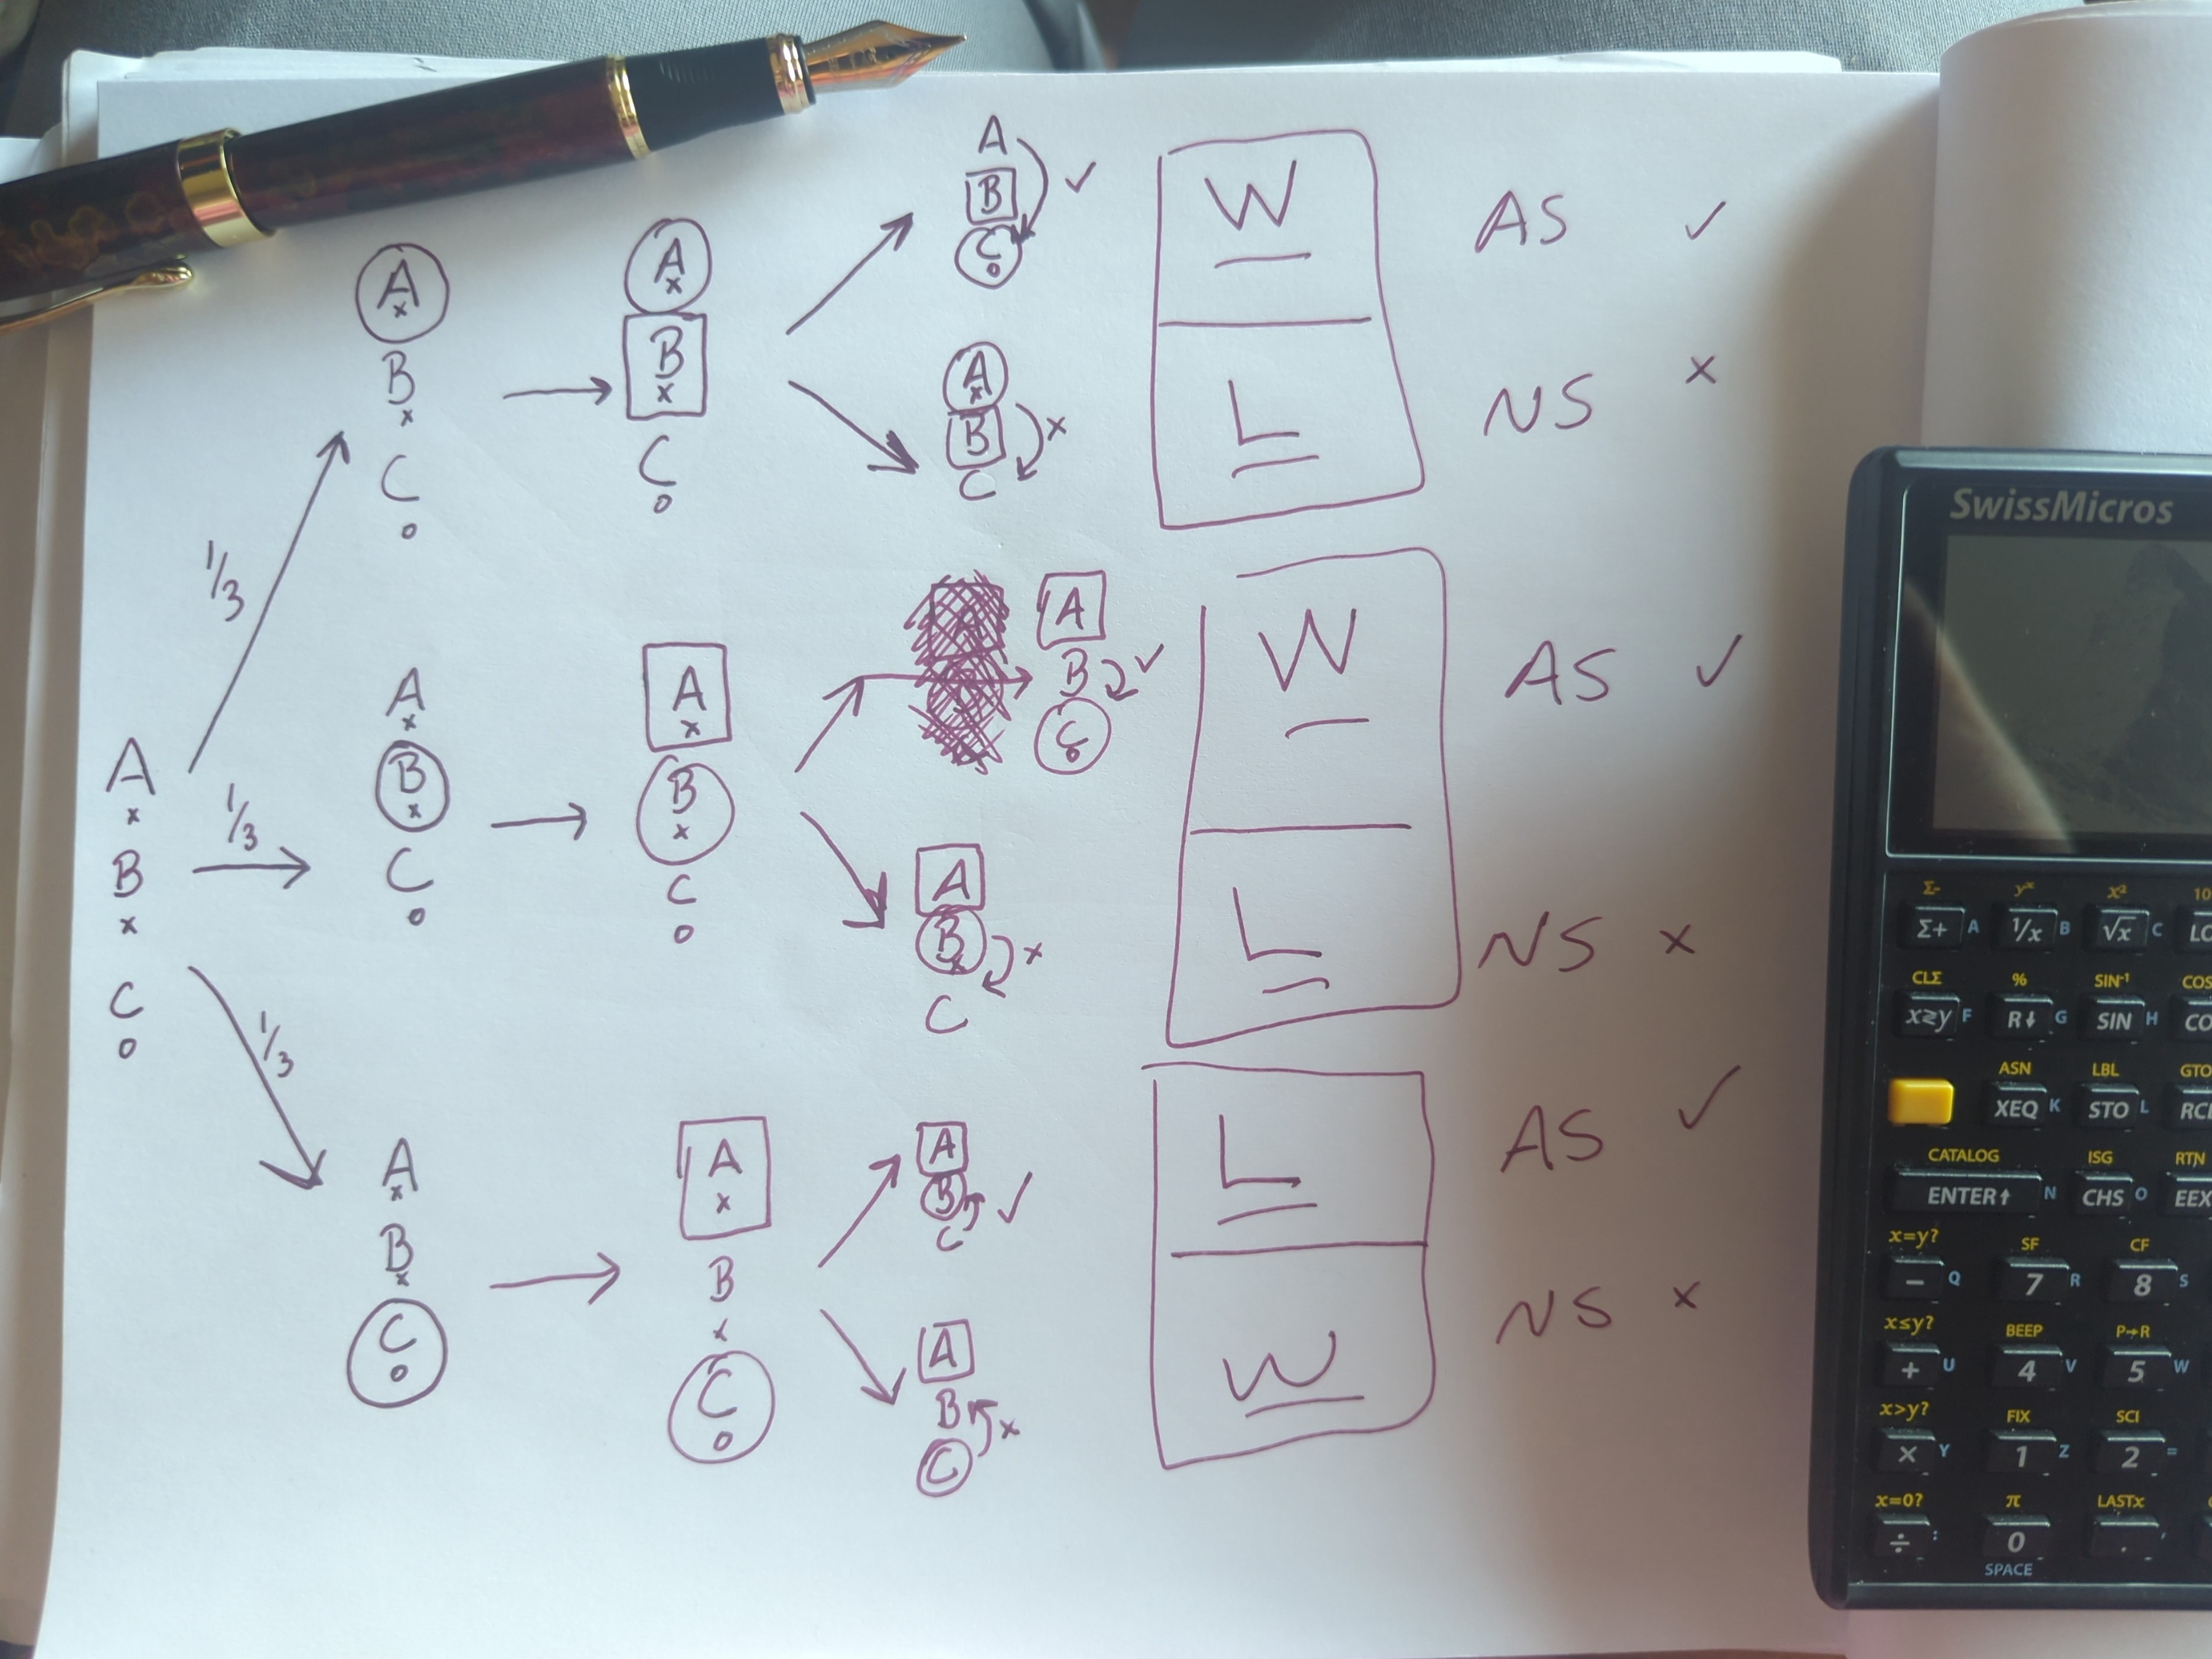 A
x
B
x
C
o
1/3
1/3
1/3
A
x
B
x
C
o
A
x
B
x
C
o
A
B
C
o
✓
A
x
B
C
x
W
L
AS ✓
NS x
A
x
B
x
C
o
A
x
B
x
C
o
A
B ✓
C
o
A
B
x
C
x
W
L
AS ✓
NS x
A
x
B
x
C
o
A
x
B
x
C
o
A
B
C
✓
A
B
C
x
L
W
AS ✓
NS x
SwissMicros
Σ- yˣ x² 10
Σ+ A 1/x B √x C LO
CLΣ % SIN⁻¹ COS
x≷y F R↓ G SIN H CO
ASN LBL GTO
XEQ K STO L RCL
CATALOG ISG RTN
ENTER↑ N CHS O EEX
x=y? SF CF
− Q 7 R 8 S
x≤y? BEEP P→R
+ U 4 V 5 W
x>y? FIX SCI
× Y 1 Z 2 =
x=0? π LASTx
÷ : 0 . ,
SPACE